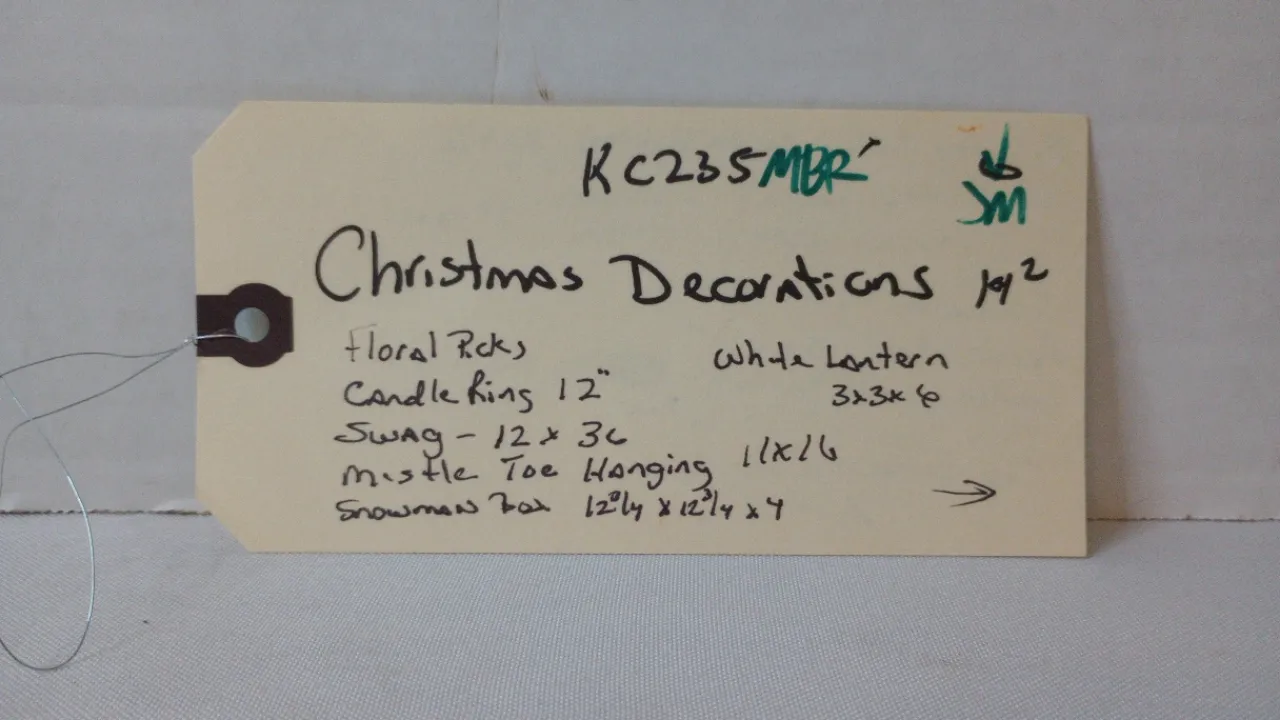 KC235MBR
JM
Christmas Decorations
Floral Picks
Candle Ring 12"
Swag - 12 x 36
Mistle Toe Hanging 11x16
Snowman Box 12 3/4 x 12 3/4 x 4
White Lantern
3x3x6